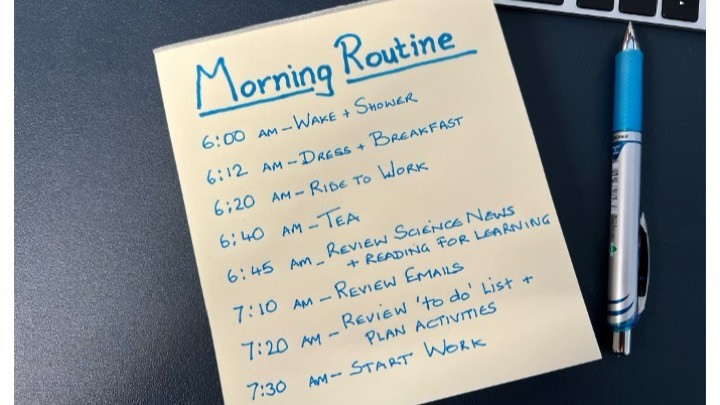 Morning Routine
6:00 AM - WAKE + SHOWER
6:12 AM - DRESS + BREAKFAST
6:20 AM - RIDE TO WORK
6:40 AM - TEA
6:45 AM - REVIEW SCIENCE NEWS
+ READING FOR LEARNING
7:10 AM - REVIEW EMAILS
7:20 AM - REVIEW 'to do' List +
PLAN ACTIVITIES
7:30 AM - START WORK